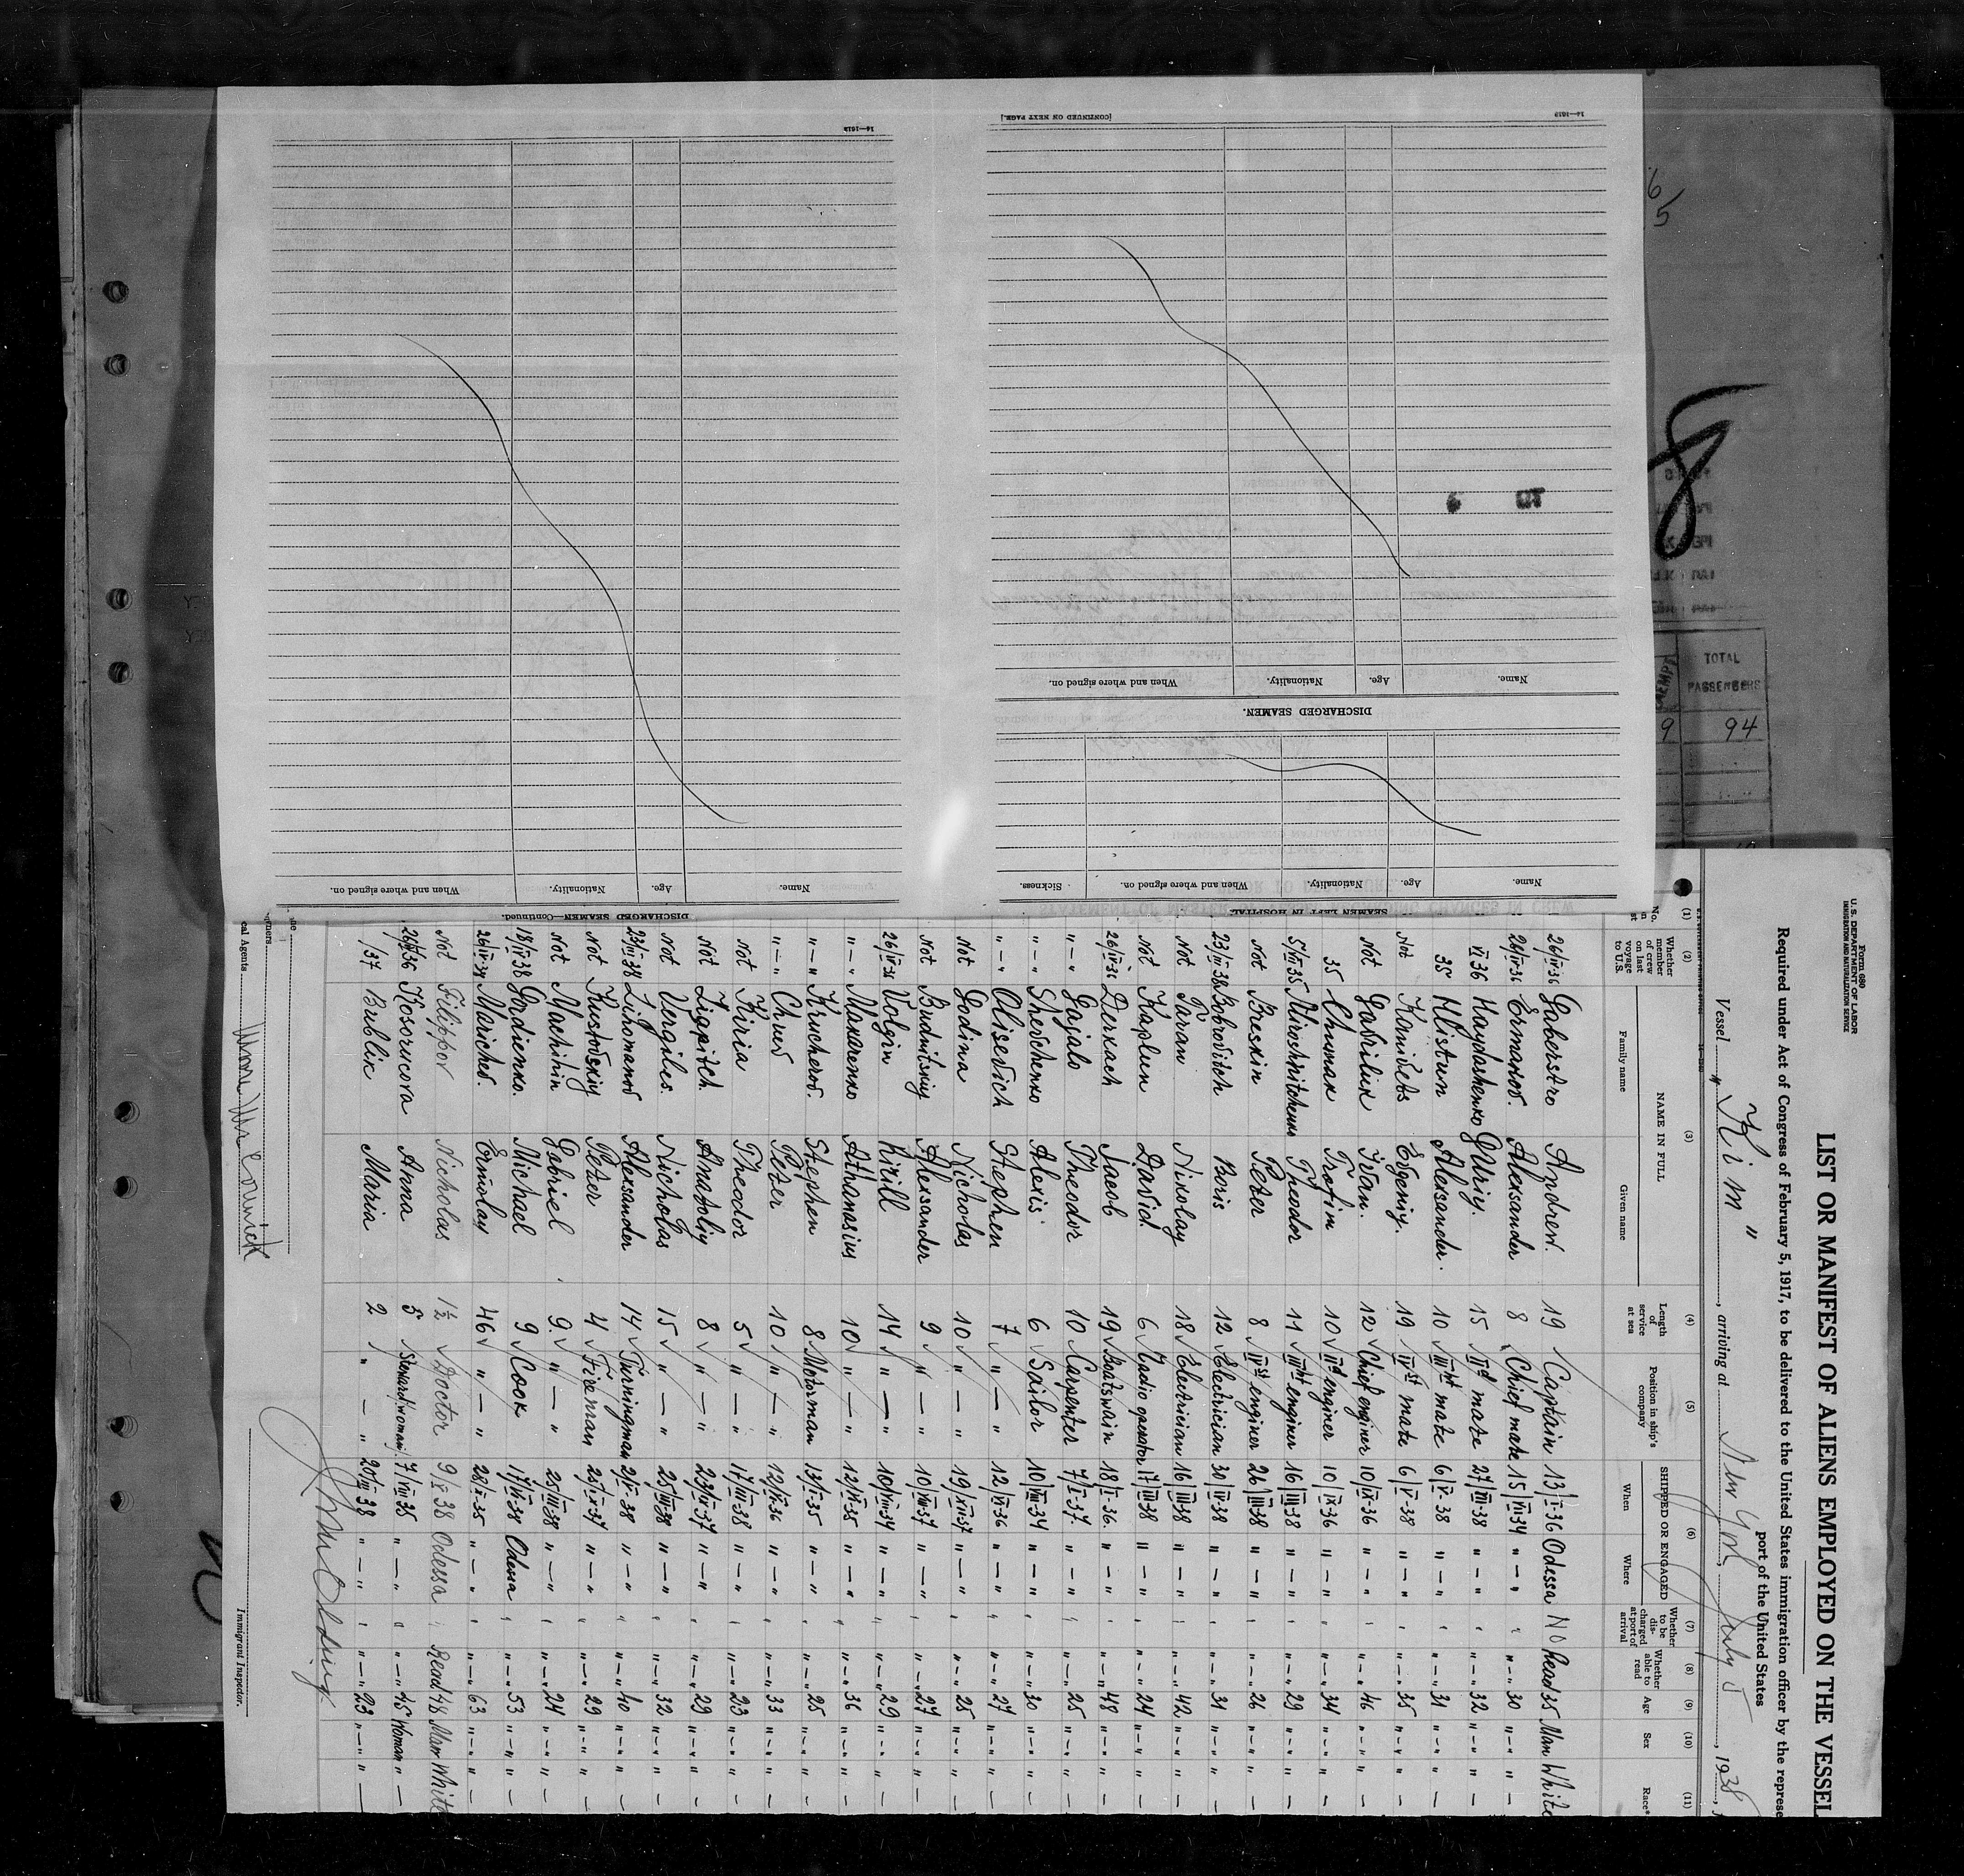 14—1619
[CONTINUED ON NEXT PAGE.]
14—1619
Name.
Age.
Nationality.
When and where signed on.
DISCHARGED SEAMEN.
Name.
Age.
Nationality.
When and where signed on.
Sickness.
SEAMEN LEFT IN HOSPITAL
Name.
Age.
Nationality.
When and where signed on.
DISCHARGED SEAMEN—Continued.
TOTAL
PASSENGERS
9 94
Form 680
U. S. DEPARTMENT OF LABOR
IMMIGRATION AND NATURALIZATION SERVICE
LIST OR MANIFEST OF ALIENS EMPLOYED ON THE VESSEL
Required under Act of Congress of February 5, 1917, to be delivered to the United States immigration officer by the represe
port of the United States
Vessel "Kim", arriving at New York, July 5, 1938,
(1) (2) (3) (4) (5) (6) (7) (8) (9) (10) (11)
Whether member of crew on last voyage to U.S.
NAME IN FULL
Family name Given name
Length of service at sea
Position in ship's company
SHIPPED OR ENGAGED
When Where
Whether to be discharged at port of arrival
Whether able to read
Age
Sex
Race*
26/IV-36 Goberstro Andrew. 19 Captain 13/I-36 Odessa No Read 35 Man White
26/IV-36 Ermakov. Alexander 8 Chief mate 15/VI-34 " — " 30 " — "
VI 36 Haydashenko Yuriy. 15 IId mate 27/III-38 " — " 32 " — "
35 Hlistun Alexander. 10 IIIht mate 6/V-38 " — " 31 " — "
Not Konivets Evgeniy. 19 IVst mate 6/V-38 " — " 35 " — "
Not Gavriluk Ivan. 12 Chief enginer 10/IX-36 " — " 46 " — "
35 Chumak Trofim 10 IId enginer 10/IX-36 " — " 34 " — "
5/VII 35 Miroshnitchenko Theodor 11 IIIht enginer 16/III-38 " — " 29 " — "
Not Breskin Peter 8 IVst enginer 26/III-38 " — " 26 " — "
23/III 38 Bobrovitch Boris 12 Electrician 30/IV-38 " — " 31 " — "
Not Taran Nikolay 18 Electrician 16/III-38 " — " 42 " — "
Not Kaplun David. 6 Radio operator 17/III-38 " — " 24 " — "
26/IV-36 Derkach Jacob 19 Boatswain 18/I-36. " — " 48 " — "
" — " Gajalo Theodor 10 Carpenter 7/I-37. " — " 25 " — "
" — " Shevchenko Alexis. 6 Sailor 10/VIII-34 " — " 30 " — "
" — " Olisevich Stephen 7 " — " 12/IV-36 " — " 27 " — "
Not Godina Nicholas 10 " — " 19/XII-37 " — " 25 " — "
Not Budnitskiy Alexander 9 " — " 10/VIII-37 " — " 27 " — "
26/IV-36 Volgin Kirill 14 " — " 10/VII-34 " — " 29 " — "
" — " Makarenko Athanasius 10 " — " 12/V-35 " — " 36 " — "
" — " Krucherov. Stephen 8 Motorman 13/I-35 " — " 25 " — "
" — " Chuev Peter 10 " — " 12/V-36 " — " 33 " — "
Not Kirria Theodor 5 " — " 17/III-38 " — " 23 " — "
Not Zigaitch Anatoliy 8 " — " 23/IX-37 " — " 29 " — "
Not Vergiles. Nicholas 15 " — " 25/III-38 " — " 32 " — "
23/III 38 Lihomanov Alexsander 14 Turningman 2/V-38 " — " 40 " — "
Not Kustovskiy Peter 4 Fireman 25/IX-37 " — " 29 " — "
Not Machihin Gabriel 9 " — " 25/III-38 " — " 24 " — "
18/IV 38 Gordienko. Michael 9 Cook 17/IV-38 Odessa " — " 53 " — "
26/IV-37 Marichev. Ermolay 46 " — " 28/X-35 " — " 63 " — "
Not Filippov Nicholas 1½ Doctor 9/V 38 Odessa " Read 48 Man White
26/IV 36 Kosorucova Anna 5 Steward/woman/ 7/VIII-35 " — " 45 Woman " —
/37 Bublik Maria 2 " — " 20/III-38 " — " 23 " — "
cal Agents
Immigrant Inspector.